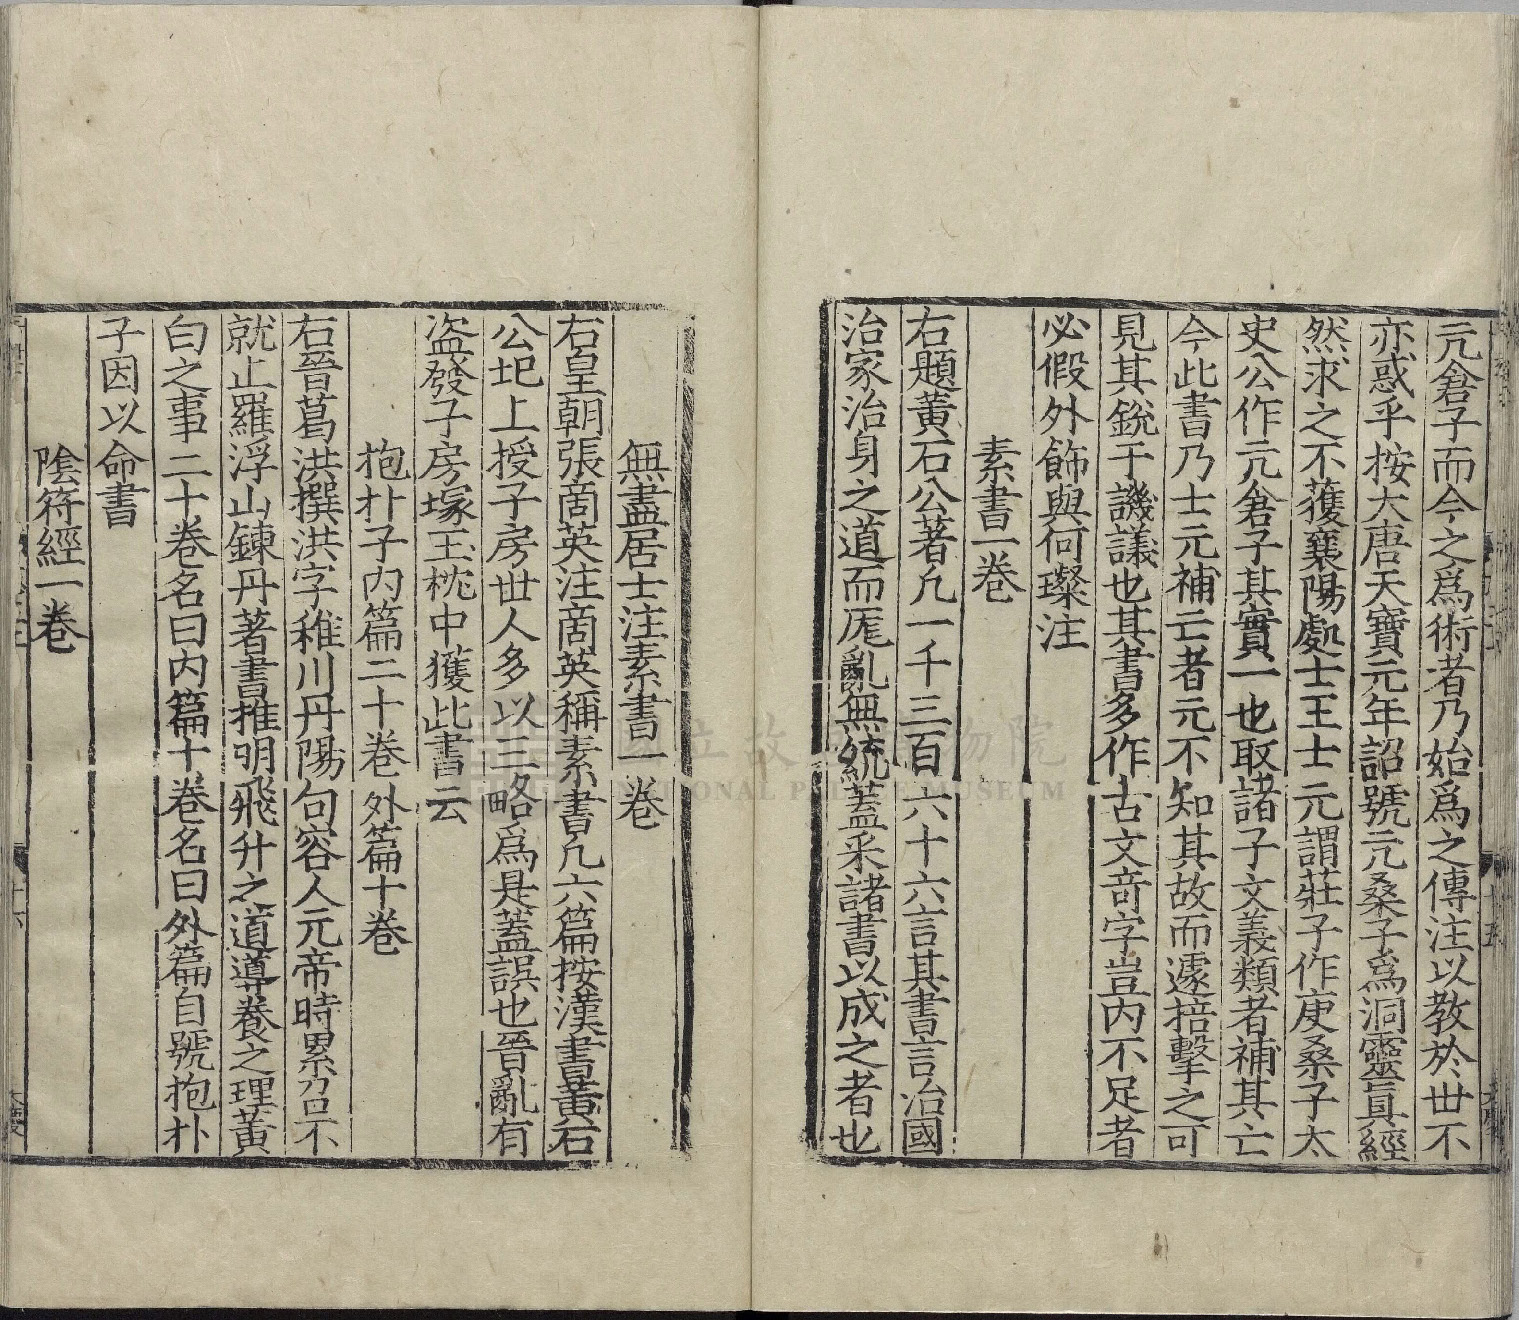 亢倉子而今之爲術者乃始爲之傳注以教於世不
亦惑乎按大唐天寶元年詔號亢桑子爲洞靈真經
然求之不獲襄陽處士王士元謂莊子作庚桑子太
史公作亢倉子其實一也取諸子文義類者補其亡
今此書乃士元補亡者元不知其故而遽掊擊之可
見其銳于譏議也其書多作古文奇字豈内不足者
必假外飾與何璨注
素書一卷
右題黃石公著凡一千三百六十六言其書言治國
治家治身之道而厖亂無統蓋采諸書以成之者也
無盡居士注素書一卷
右皇朝張啇英注啇英稱素書凡六篇按漢書黃石
公圯上授子房世人多以三略爲是蓋誤也晉亂有
盗發子房塚玉枕中獲此書云
抱朴子内篇二十卷外篇十卷
右晉葛洪撰洪字稚川丹陽句容人元帝時累召不
就止羅浮山鍊丹著書推明飛升之道導養之理黃
白之事二十卷名曰内篇十卷名曰外篇自號抱朴
子因以命書
陰符經一卷
十五
十六
國立故宮博物院
NATIONAL PALACE MUSEUM